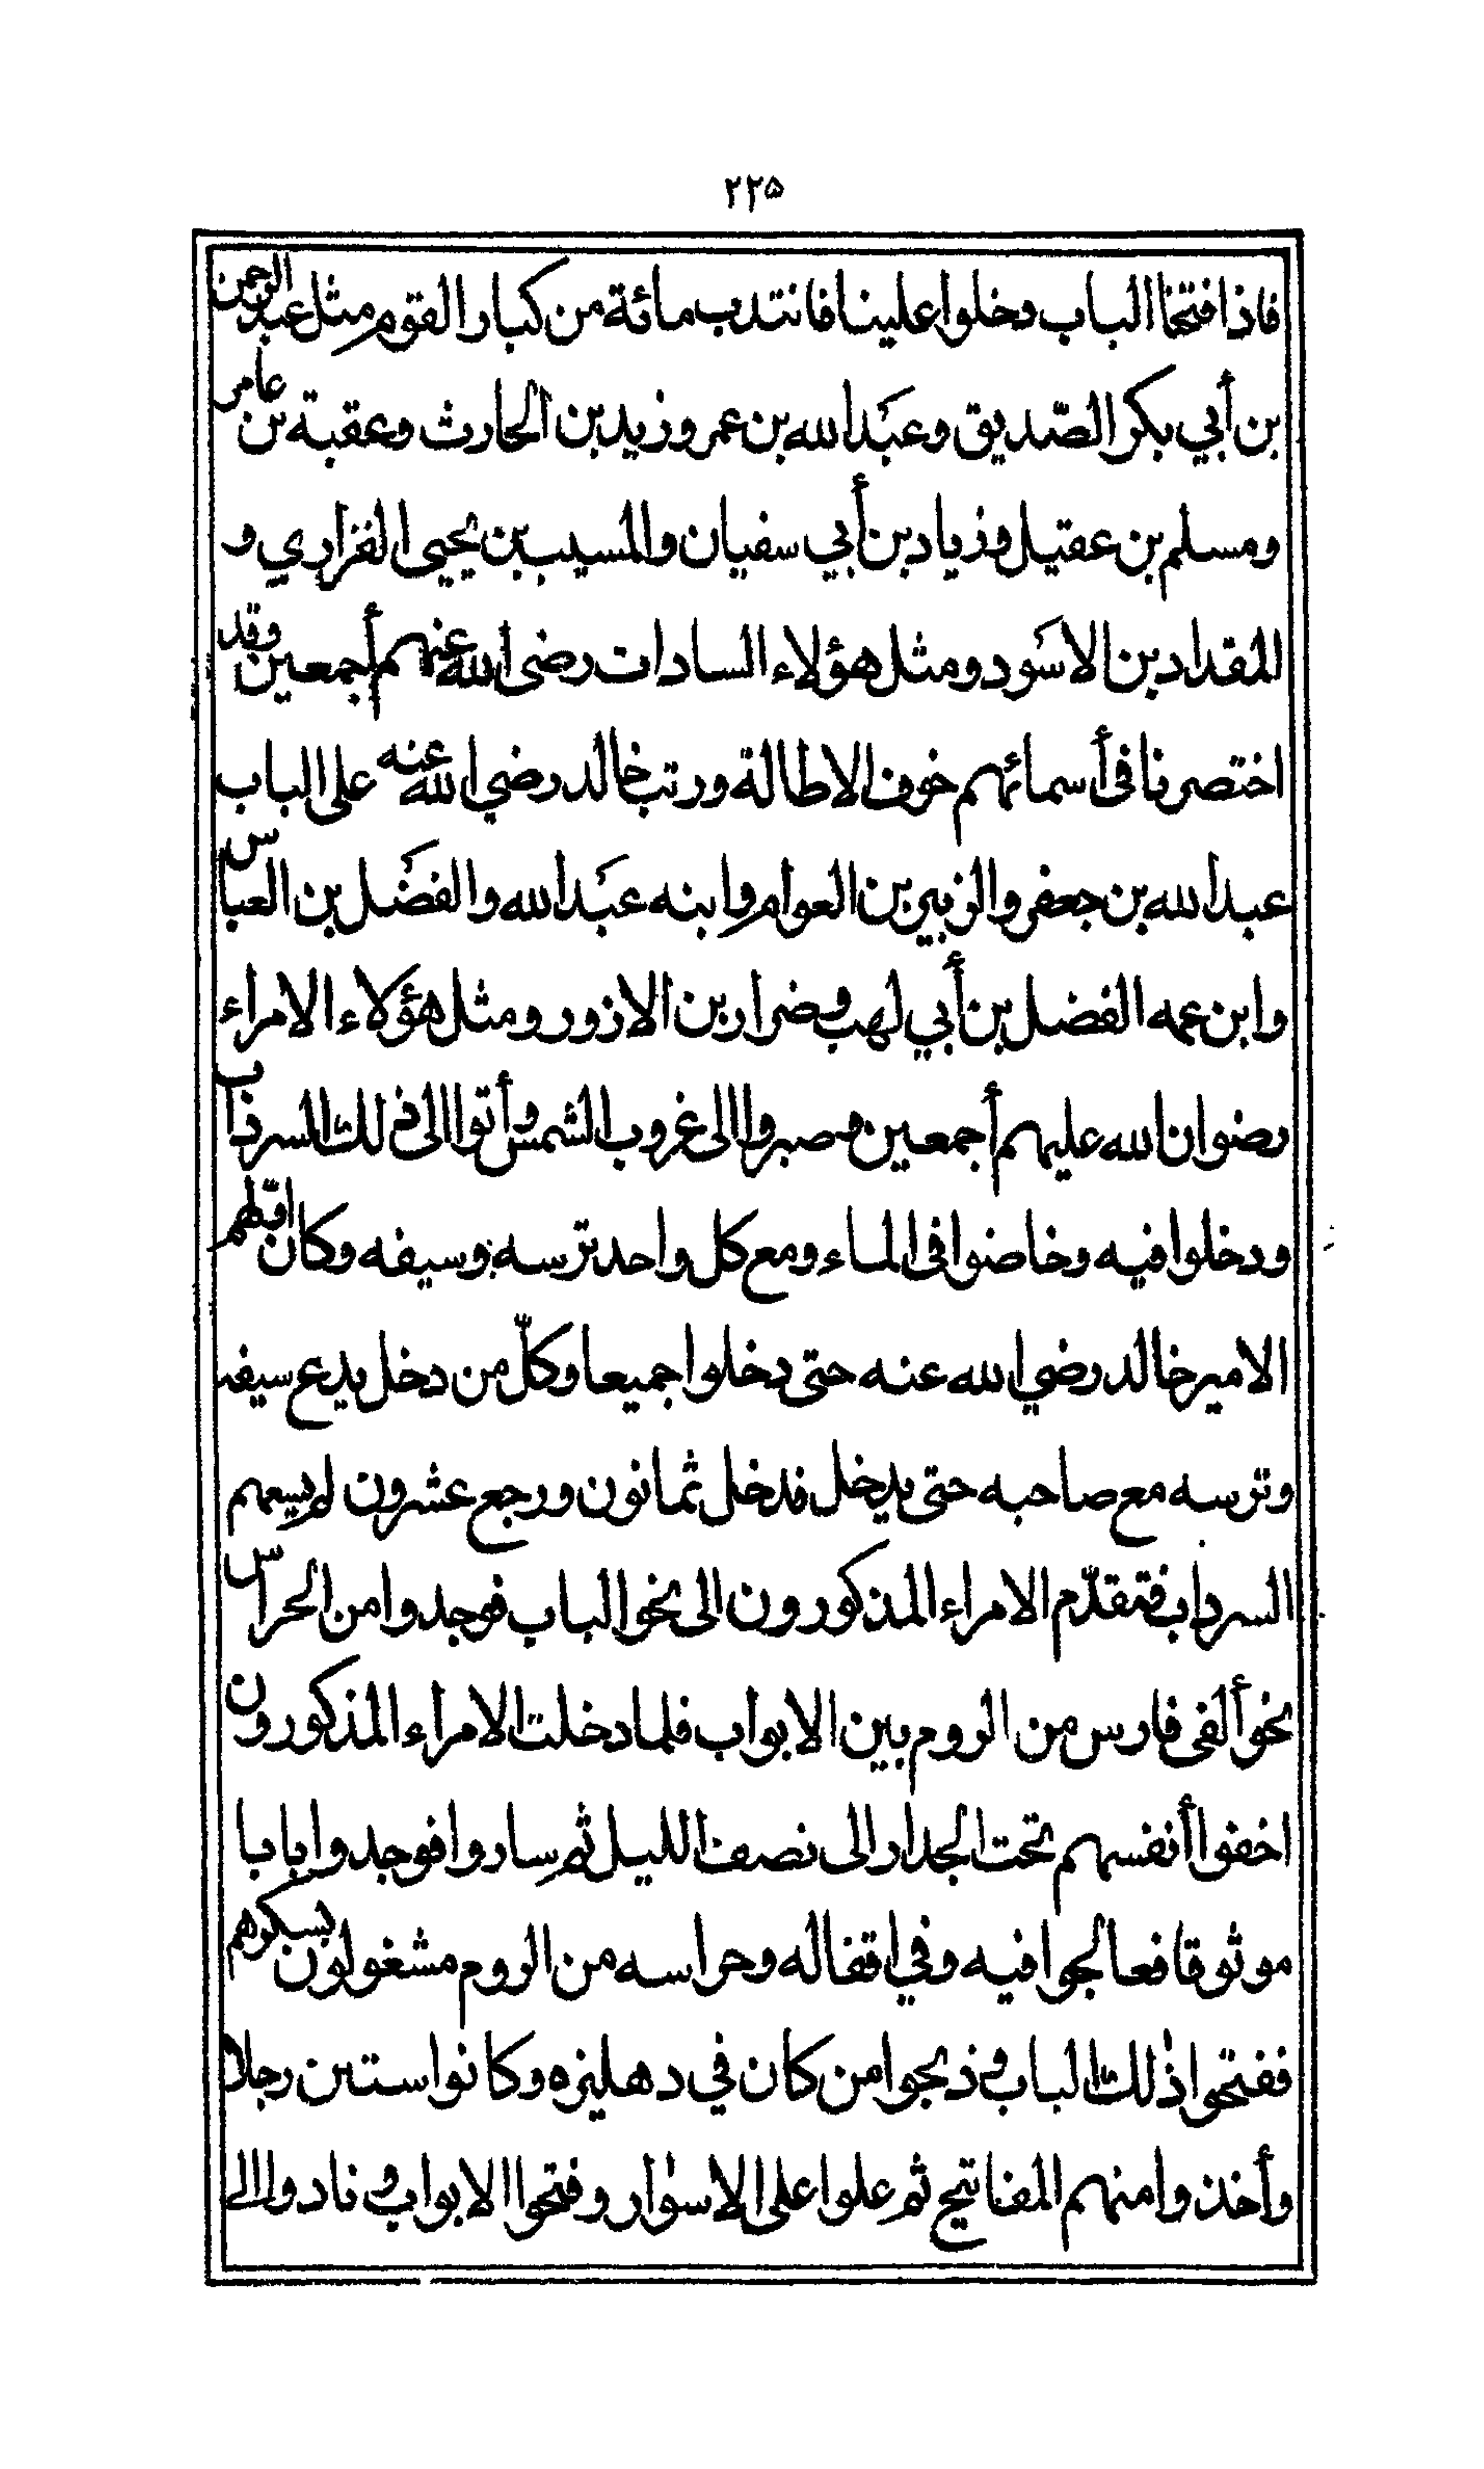 ٢٢٥
فاذا فتحنا الباب دخلوا علينا فانتدب مائة من كبار القوم مثل عبد الرحمن
بن أبي بكر الصّديق وعبد الله بن عمر وزيد بن الحارث وعقبة بن عامر
ومسلم بن عقيل وزياد بن أبي سفيان والمسيب بن يحيى الفزاري و
المقداد بن الاسود ومثل هؤلاء السادات رضى الله عنهم أجمعين وقد
اختصرنا فى أسمائهم خوف الاطالة ورتب خالد رضي الله عنه على الباب
عبد الله بن جعفر والزبير بن العوام وابنه عبد الله والفضل بن العباس
وابن عمه الفضل بن أبي لهب وضرار بن الازور ومثل هؤلاء الامراء
رضوان الله عليهم أجمعين وصبروا الى غروب الشمس وأتوا الى ذلك السرداب
ودخلوا فيه وخاضوا فى الماء ومع كل واحد ترسه وسيفه وكان اوّلهم
الامير خالد رضي الله عنه حتى دخلوا جميعا وكلّ من دخل يدع سيفه
وترسه مع صاحبه حتى يدخل فدخل ثمانون ورجع عشرون لم يسعهم
السرداب فتقدّم الامراء المذكورون الى نحو الباب فوجدوا من الحراس
نحو ألفى فارس من الروم بين الابواب فلما دخلت الامراء المذكورون
اخفوا أنفسهم تحت الجدار الى نصف الليل ثم ساروا فوجدوا بابا
موثوقا فعالجوا فيه وفي اقفاله وحراسه من الروم مشغولون بسكرهم
ففتحوا ذلك الباب وذبحوا من كان في دهليزه وكانوا ستين رجلا
وأخذوا منهم المفاتيح ثم علوا على الاسوار وفتحوا الابواب ونادوا الى